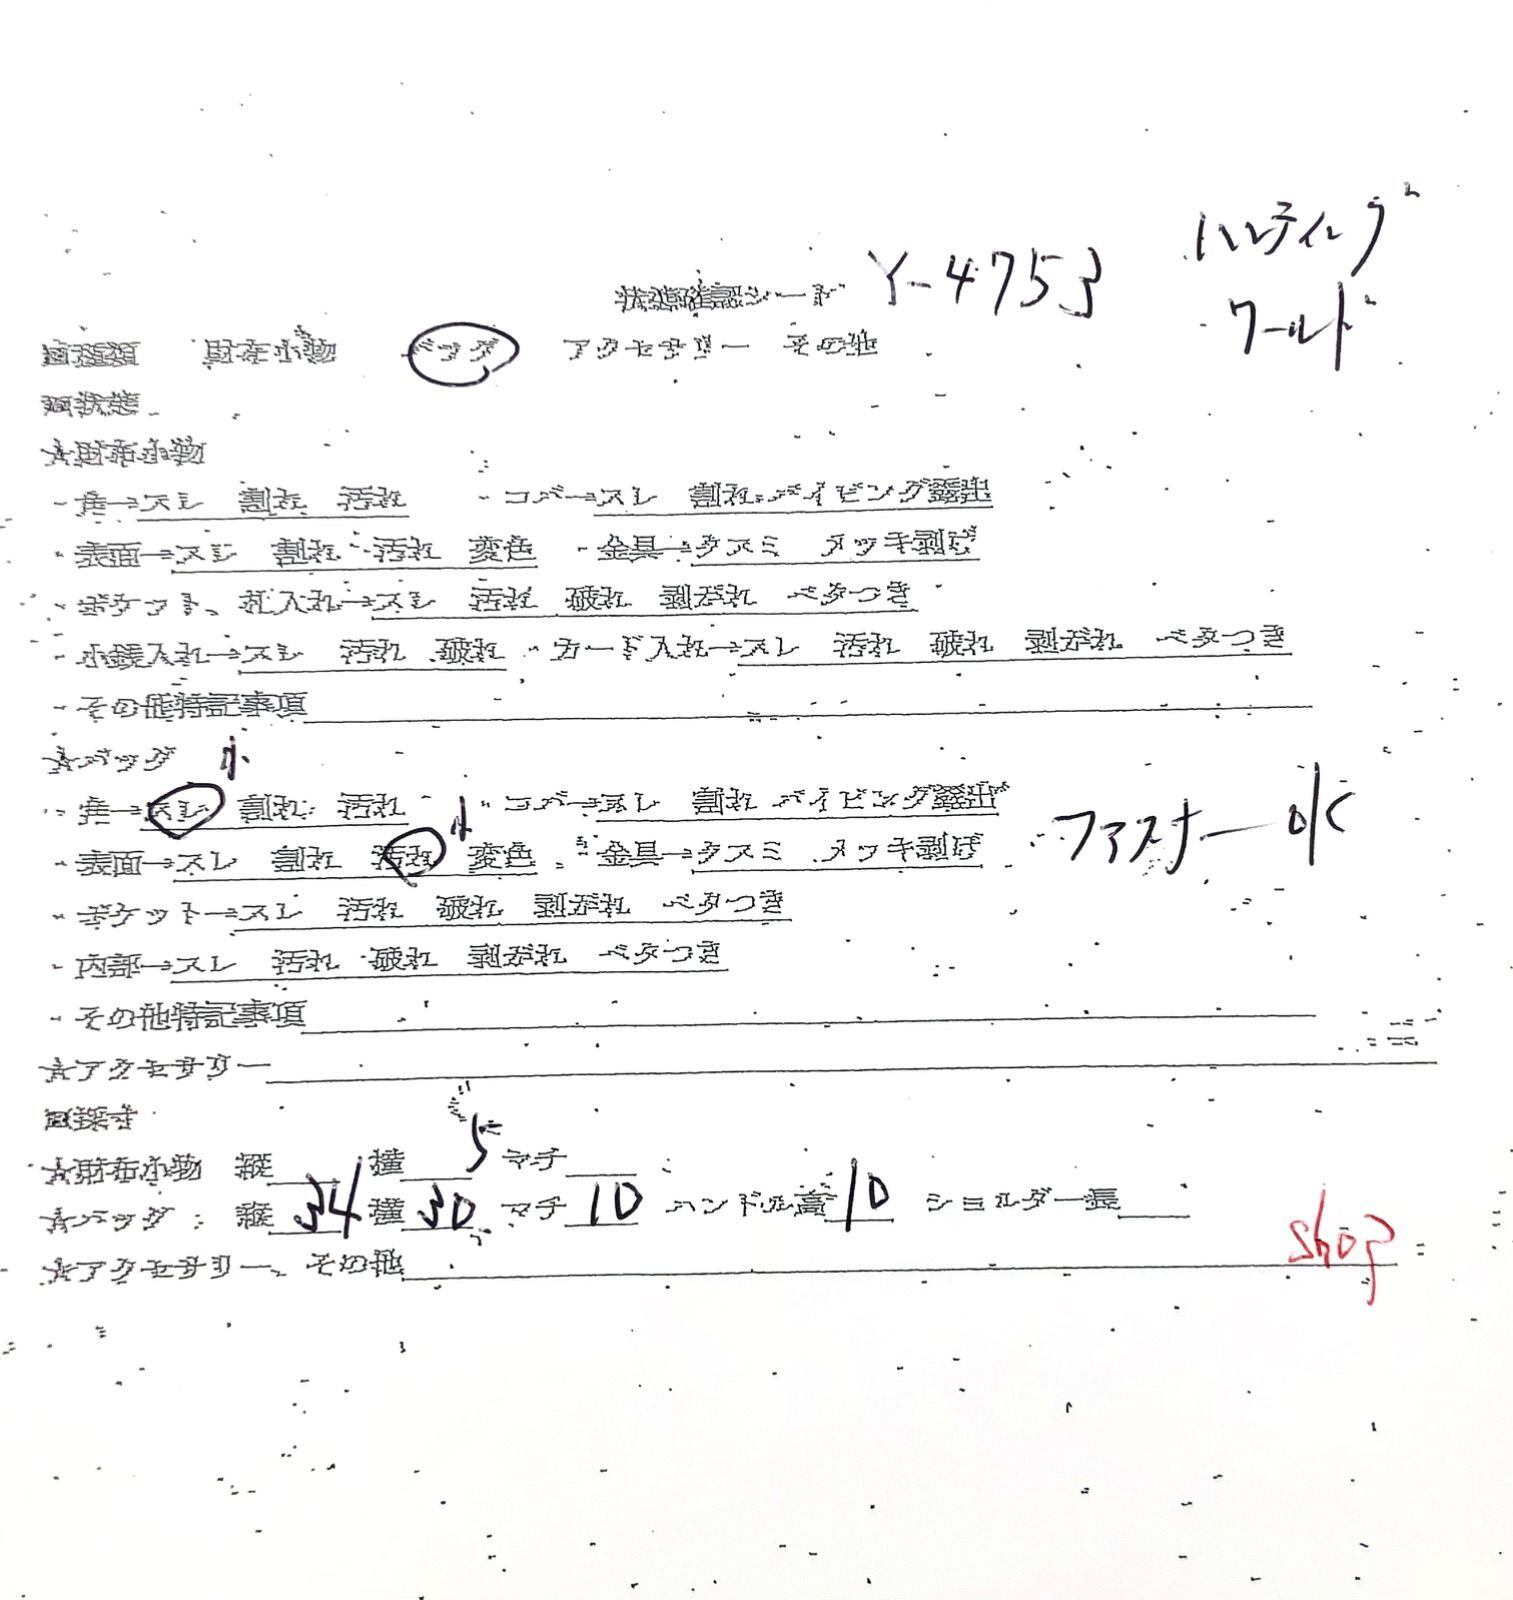 ハンティング
ワールド
状態確認シート Y-4753
□種類 財布小物 バッグ アクセサリー その他
□状態
☆財布小物
・角→スレ 割れ 汚れ ・コバ→スレ 割れ パイピング露出
・表面→スレ 割れ 汚れ 変色 ・金具→クスミ メッキ剥げ
・ポケット、札入れ→スレ 汚れ 破れ 剥がれ ベタつき
・小銭入れ→スレ 汚れ 破れ ・カード入れ→スレ 汚れ 破れ 剥がれ ベタつき
・その他特記事項
☆バッグ 小
・角→スレ 割れ 汚れ 小 ・コバ→スレ 割れ パイピング露出
・表面→スレ 割れ 汚れ 変色 ・金具→クスミ メッキ剥げ ファスナー OK
・ポケット→スレ 汚れ 破れ 剥がれ ベタつき
・内部→スレ 汚れ 破れ 剥がれ ベタつき
・その他特記事項
☆アクセサリー
□採寸
☆財布小物 縦 横 5 マチ
☆バッグ : 縦 34 横 30 マチ 10 ハンドル高 10 ショルダー長
☆アクセサリー、その他 shop